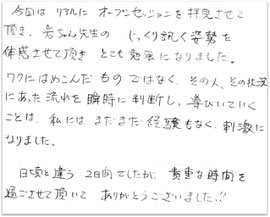 今回は リアルに オープンセッションを 拝見させて
頂き、岩ちゃん先生の じっくり訊く姿勢を
体感させて頂き とても勉強になりました。
ワクにはめこんだ ものではなく、その人、その状況
にあった 流れを 瞬時に判断し、導いていく
ことは、私には まだまだ 経験もなく、刺激に
なりました。
日頃と違う 2日間でしたが 貴重な時間を
過ごさせて頂いて ありがとうございました!!